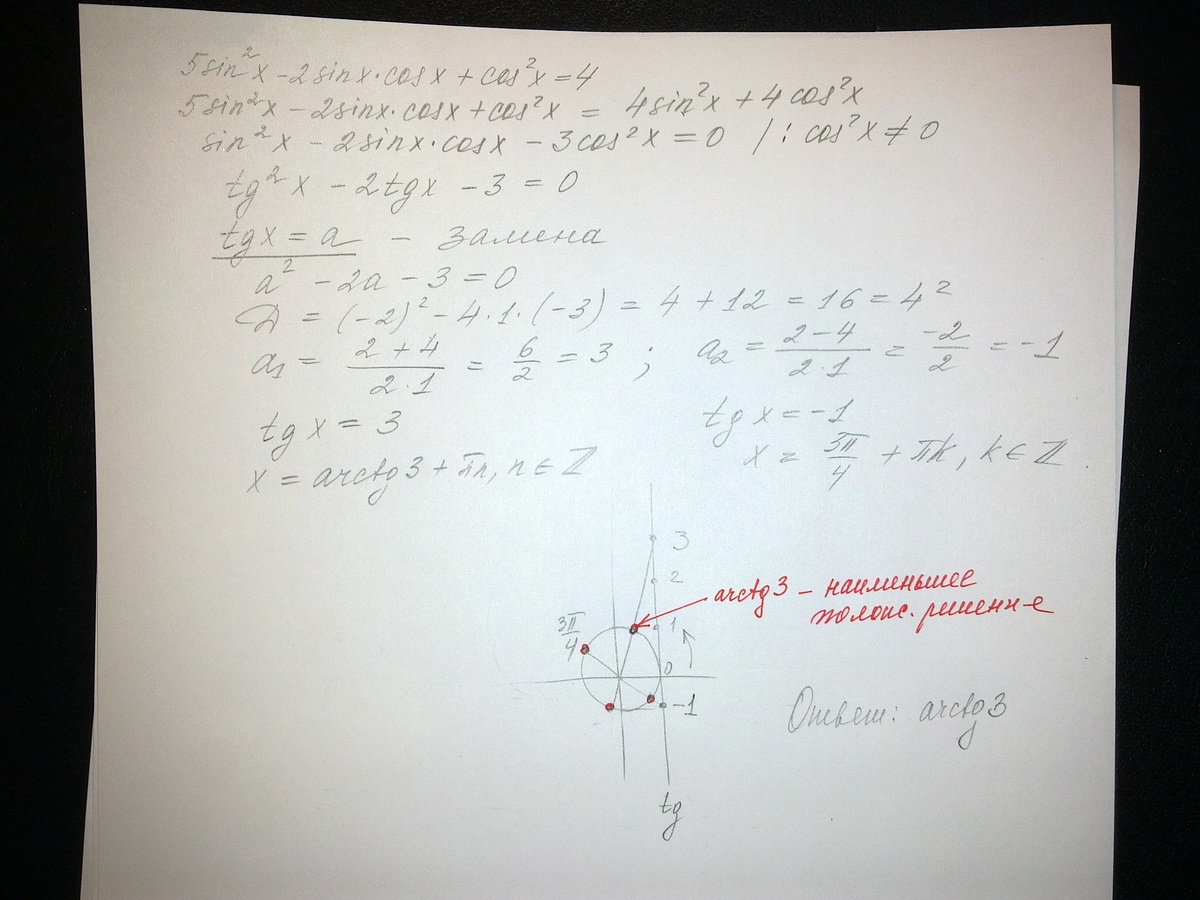 5sin²x - 2sinx·cosx + cos²x = 4
5sin²x - 2sinx·cosx + cos²x = 4sin²x + 4cos²x
sin²x - 2sinx·cosx - 3cos²x = 0 /: cos²x ≠ 0
tg²x - 2tgx - 3 = 0
tgx = a - замена
a² - 2a - 3 = 0
D = (-2)² - 4·1·(-3) = 4 + 12 = 16 = 4²
a₁ = (2+4)/(2·1) = 6/2 = 3 ; a₂ = (2-4)/(2·1) = -2/2 = -1
tgx = 3 tgx = -1
x = arctg3 + πn, n ∈ ℤ x = 3π/4 + πk, k ∈ ℤ
3
2
arctg3 - наименьшее
полож. решени-е
1
3π/4
0
-1
Ответ: arctg3
tg